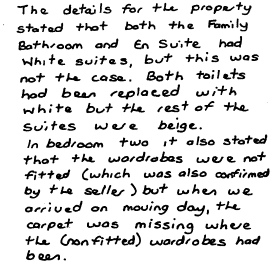 The details for the property
stated that both the Family
Bathroom and En Suite had
White suites, but this was
not the case. Both toilets
had been replaced with
white but the rest of the
suites were beige.
In bedroom two it also stated
that the wardrobes were not
fitted (which was also confirmed
by the seller) but when we
arrived on moving day, the
carpet was missing where
the (non fitted) wardrobes had
been.